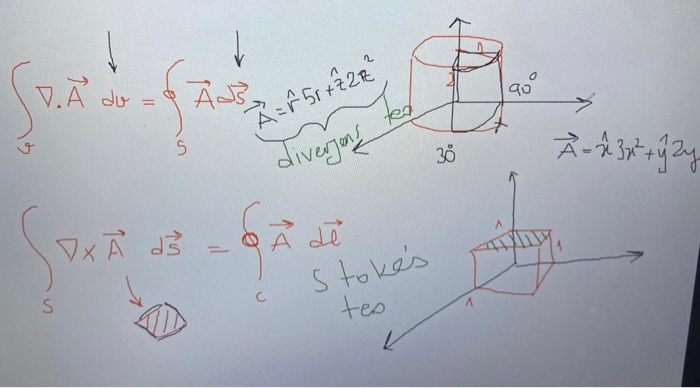 ∫ᵥ ∇.A⃗ dv = ∮ₛ A⃗ ds⃗
A⃗ = r̂ 5r + ẑ 2z²
divergens teo
1
2
90°
30°
A⃗ = x̂ 3x² + ŷ 2y
∫ₛ ∇×A⃗ ds⃗ = ∮꜀ A⃗ dl⃗
Stoke's
teo
1
1
1